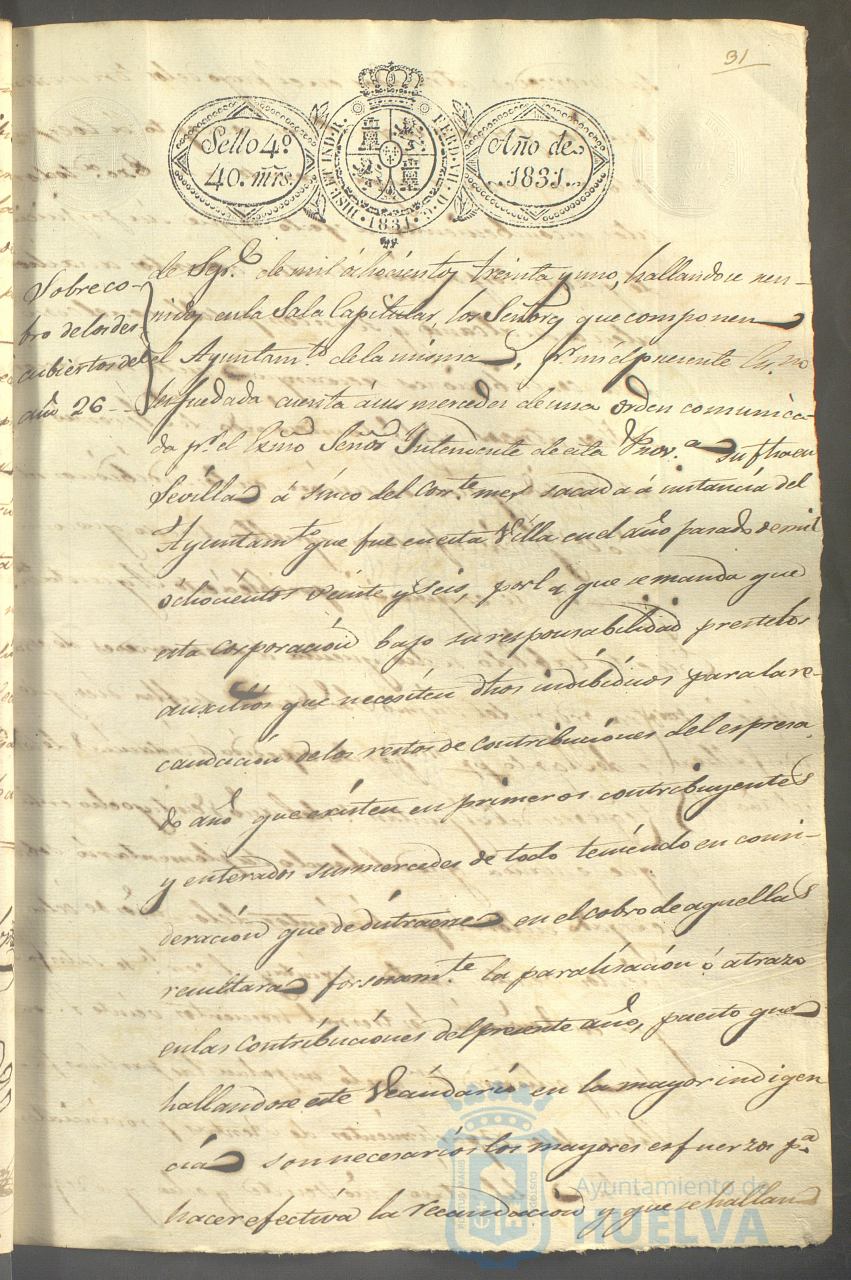 31
Sello 4º
40. mrs.
HISP. ET IND. R.
FERD. VII. D. G.
1831
Año de
1831.
Sobre co-
bro de los des
cubiertos del
año 26
de Sepre. de mil ochocientos treinta y uno, hallandose reu-
nidos en la Sala Capitular, los Señores que componen
el Ayuntamto. de la misma, pr. mi el presente Essno
les fue dada cuenta á sus mercedes de una orden comunica-
da pr. el Exmo Señor Intendente de esta Prova. su fha en
Sevilla á sinco del corte. mes sacada á instancia del
Ayuntamto que fue en esta Villa en el año pasado de mil
ochocientos veinte y seis, por la que se manda que
esta corporación bajo su responsabilidad preste los
auxilios que necesiten dhos indibiduos para la re-
caudación de los restos de contribuciones del espresa
do año que existen en primeros contribuyentes
y enterados sus mercedes de todo teniendo en consi-
deración que de distraerse en el cobro de aquellas
resultara forsosamte. la paralisación ó atrazo
en las contribuciones del presente año, puesto que
hallandose este Vecindario en la mayor indigen
cia son necesarios los mayores esfuerzos pa.
hacer efectiva la recaudación y que se hallan
Ayuntamiento de
HUELVA